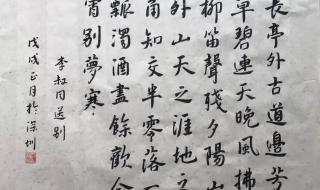 長亭外古道邊芳
草碧連天晚風拂
柳笛聲殘夕陽山
外山天之涯地之
角知交半零落
瓢濁酒盡餘歡今
宵别夢寒
李叔同送别
戊戌正月於深圳